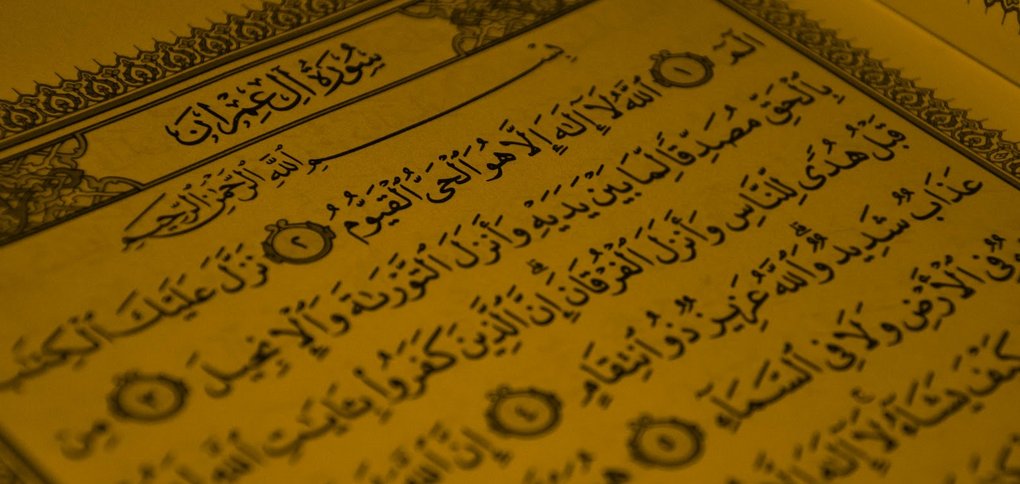 سُورَةُ آلِ عِمْرَانَ
بِسْمِ ٱللَّهِ ٱلرَّحْمَٰنِ ٱلرَّحِيمِ
الٓمٓ ١ ٱللَّهُ لَآ إِلَٰهَ إِلَّا هُوَ ٱلْحَىُّ ٱلْقَيُّومُ ٢ نَزَّلَ عَلَيْكَ ٱلْكِتَٰبَ
بِٱلْحَقِّ مُصَدِّقًا لِّمَا بَيْنَ يَدَيْهِ وَأَنزَلَ ٱلتَّوْرَىٰةَ وَٱلْإِنجِيلَ ٣ مِن
قَبْلُ هُدًى لِّلنَّاسِ وَأَنزَلَ ٱلْفُرْقَانَ ۗ إِنَّ ٱلَّذِينَ كَفَرُوا۟ بِـَٔايَٰتِ ٱللَّهِ
عَذَابٌ شَدِيدٌ ۗ وَٱللَّهُ عَزِيزٌ ذُو ٱنتِقَامٍ ٤ إِنَّ ٱللَّهَ
فِى ٱلْأَرْضِ وَلَا فِى ٱلسَّمَآءِ ٥ هُوَ
كَيْفَ يَشَآءُ ۚ لَآ إِلَٰهَ إِلَّا